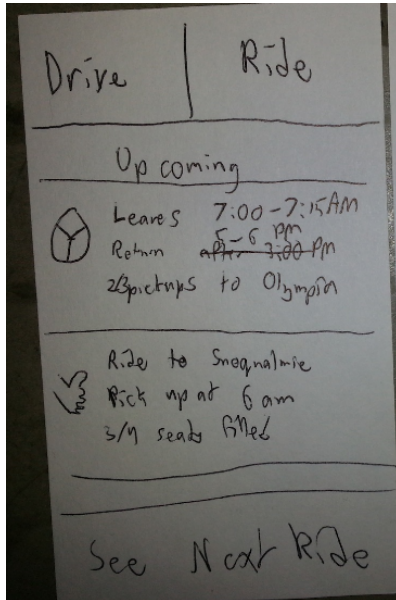 Drive
Ride
Upcoming
Leaves 7:00-7:15AM
5-6 pm
Return after 3:00 pm
2/3 pickups to Olympia
Ride to Snoqualmie
Pick up at 6 am
3/4 seats filled
See Next Ride